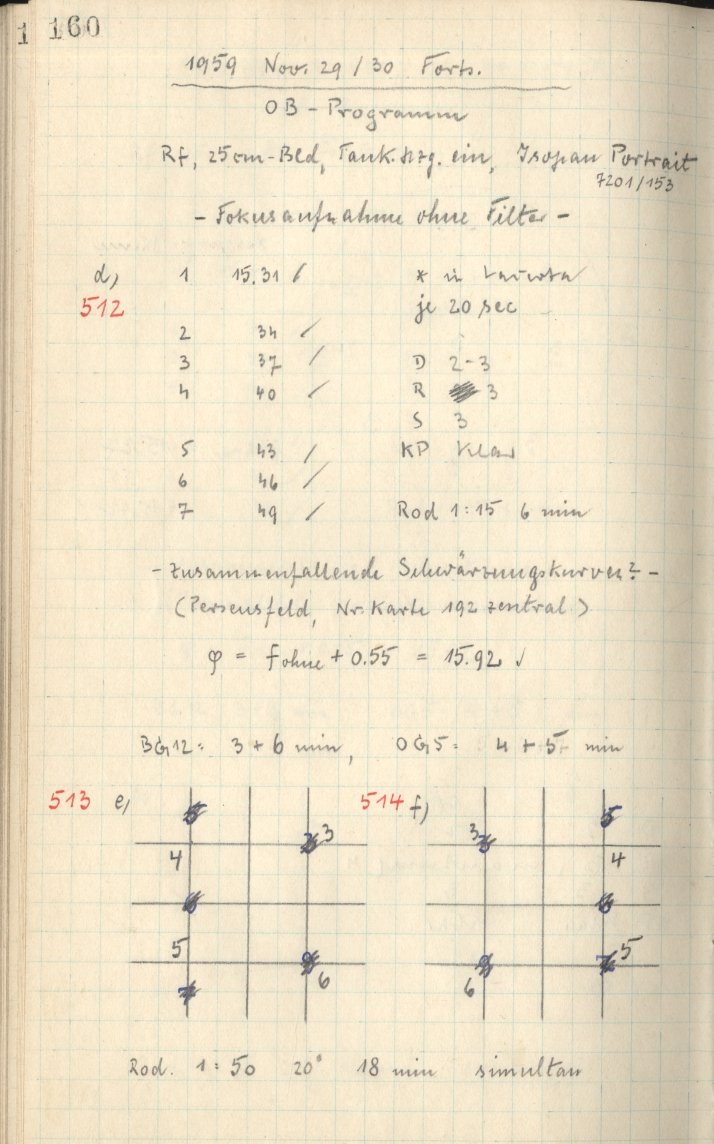 1 160
1959 Nov. 29/30 Forts.
OB-Programm
Rf, 25cm-Bld, Tank.hzg. ein, Isopan Portrait
7201/153
- Fokusaufnahme ohne Filter -
d) 1 15.31 / * in
512 je 20 sec
2 34 /
3 37 / D 2-3
4 40 / R 3
S 3
5 43 / KP klar
6 46 /
7 49 / Rod 1:15 6 min
- Zusammenfallende Schwärzungskurven? -
(Perseusfeld, Nr. Karte 192 zentral)
φ = fohne + 0.55 = 15.92 ✓
BG12: 3 + 6 min, OG5: 4 + 5 min
513 e) 514 f)
5 5
3 3
4 4
5 5
6 6
Rod. 1:50 20° 18 min simultan